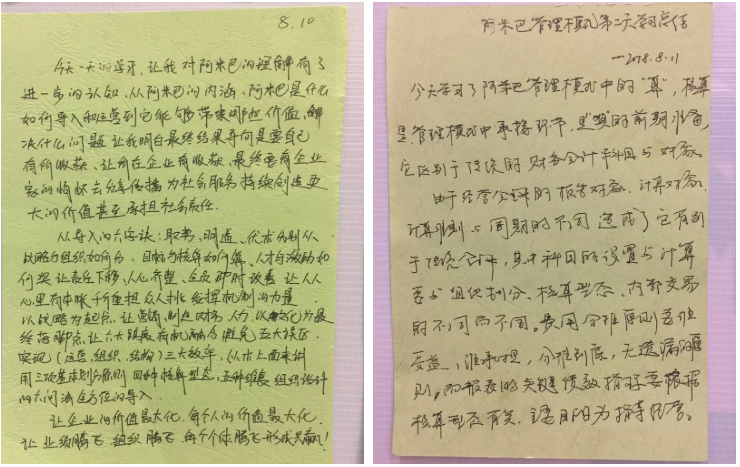 8.10
今天一天的学习，让我对阿米巴的理解有了
进一步的认知，从阿米巴的内涵、阿米巴是什么
如何导入和运营到它能够带来哪些价值，解
决什么问题让我明白最终结果导向是要自己
有所收获、让所在企业有收获，最终要有企业
家的情怀去分享传播为社会服务持续创造更
大的价值甚至承担社会责任.
从导入的六字诀：取势、明道、优术分别从
战略与组织如何分、目标与核算如何算、人才与激励如
何奖让责任下移、人心齐整、全员即时改善让人人
心里有本账千斤重担众人挑发挥机制的力量.
以战略为起点，让营销、制造、财务、人力以文化为最
终落脚点，让六大系统有机融合避免五大误区.
实现（运营、组织、结构）三大效率，从术上面来讲
用三项基本划分原则四种核算型态，五种维度组织设计
的六问法全方位的导入.
让企业的价值最大化，每个人的价值最大化.
让业绩腾飞组织腾飞每个个体腾飞形成共赢！
阿米巴管理模式第二天学习总结
—2018.8.11
今天学习了阿米巴管理模式中的“算”，核算
是管理模式中承接环节，是“奖”的前期准备，
它区别于传统的财务会计科目与对象。
由于经营会计的报告对象、计算对象、
计算准则与周期的不同造成了它有别
于传统会计，其中科目的设置与计算
要与组织划分、核算型态、内部交易
的不同而不同。费用分摊原则若谁
受益，谁承担，分摊到底，无遗漏的原
则。而报表的关键绩效指标要根据
核算型态有关，主要目的为指导经营。